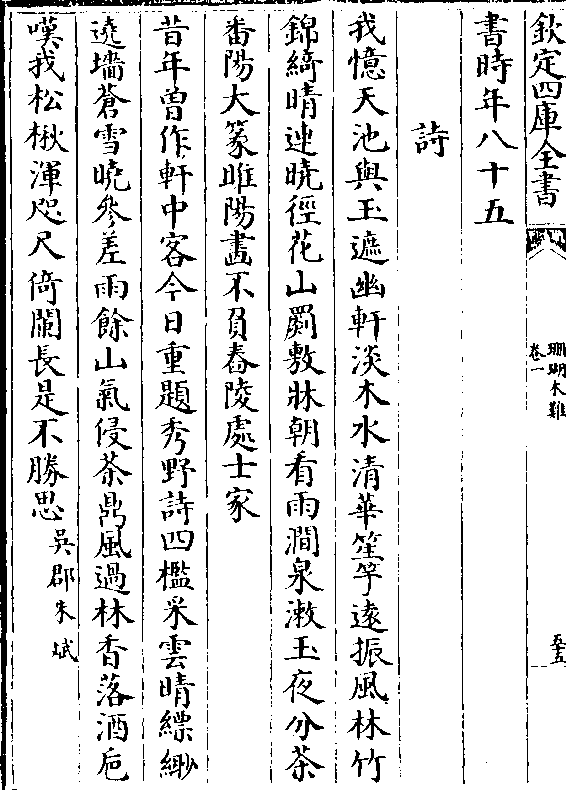 欽定四庫全書
珊瑚木難
卷一
五五
書時年八十五
詩
我憶天池與玉遮幽軒淡木水清華笙竽遠振風林竹
錦綺晴連曉徑花山罽敷牀朝看雨澗泉漱玉夜分茶
番陽大篆睢陽畫不負舂陵處士家
昔年曾作軒中客今日重題秀野詩四檻采雲晴縹緲
遶墻蒼雪曉參差雨餘山氣侵茶鼎風過林香落酒巵
嘆我松楸渾咫尺倚闌長是不勝思吳郡朱斌